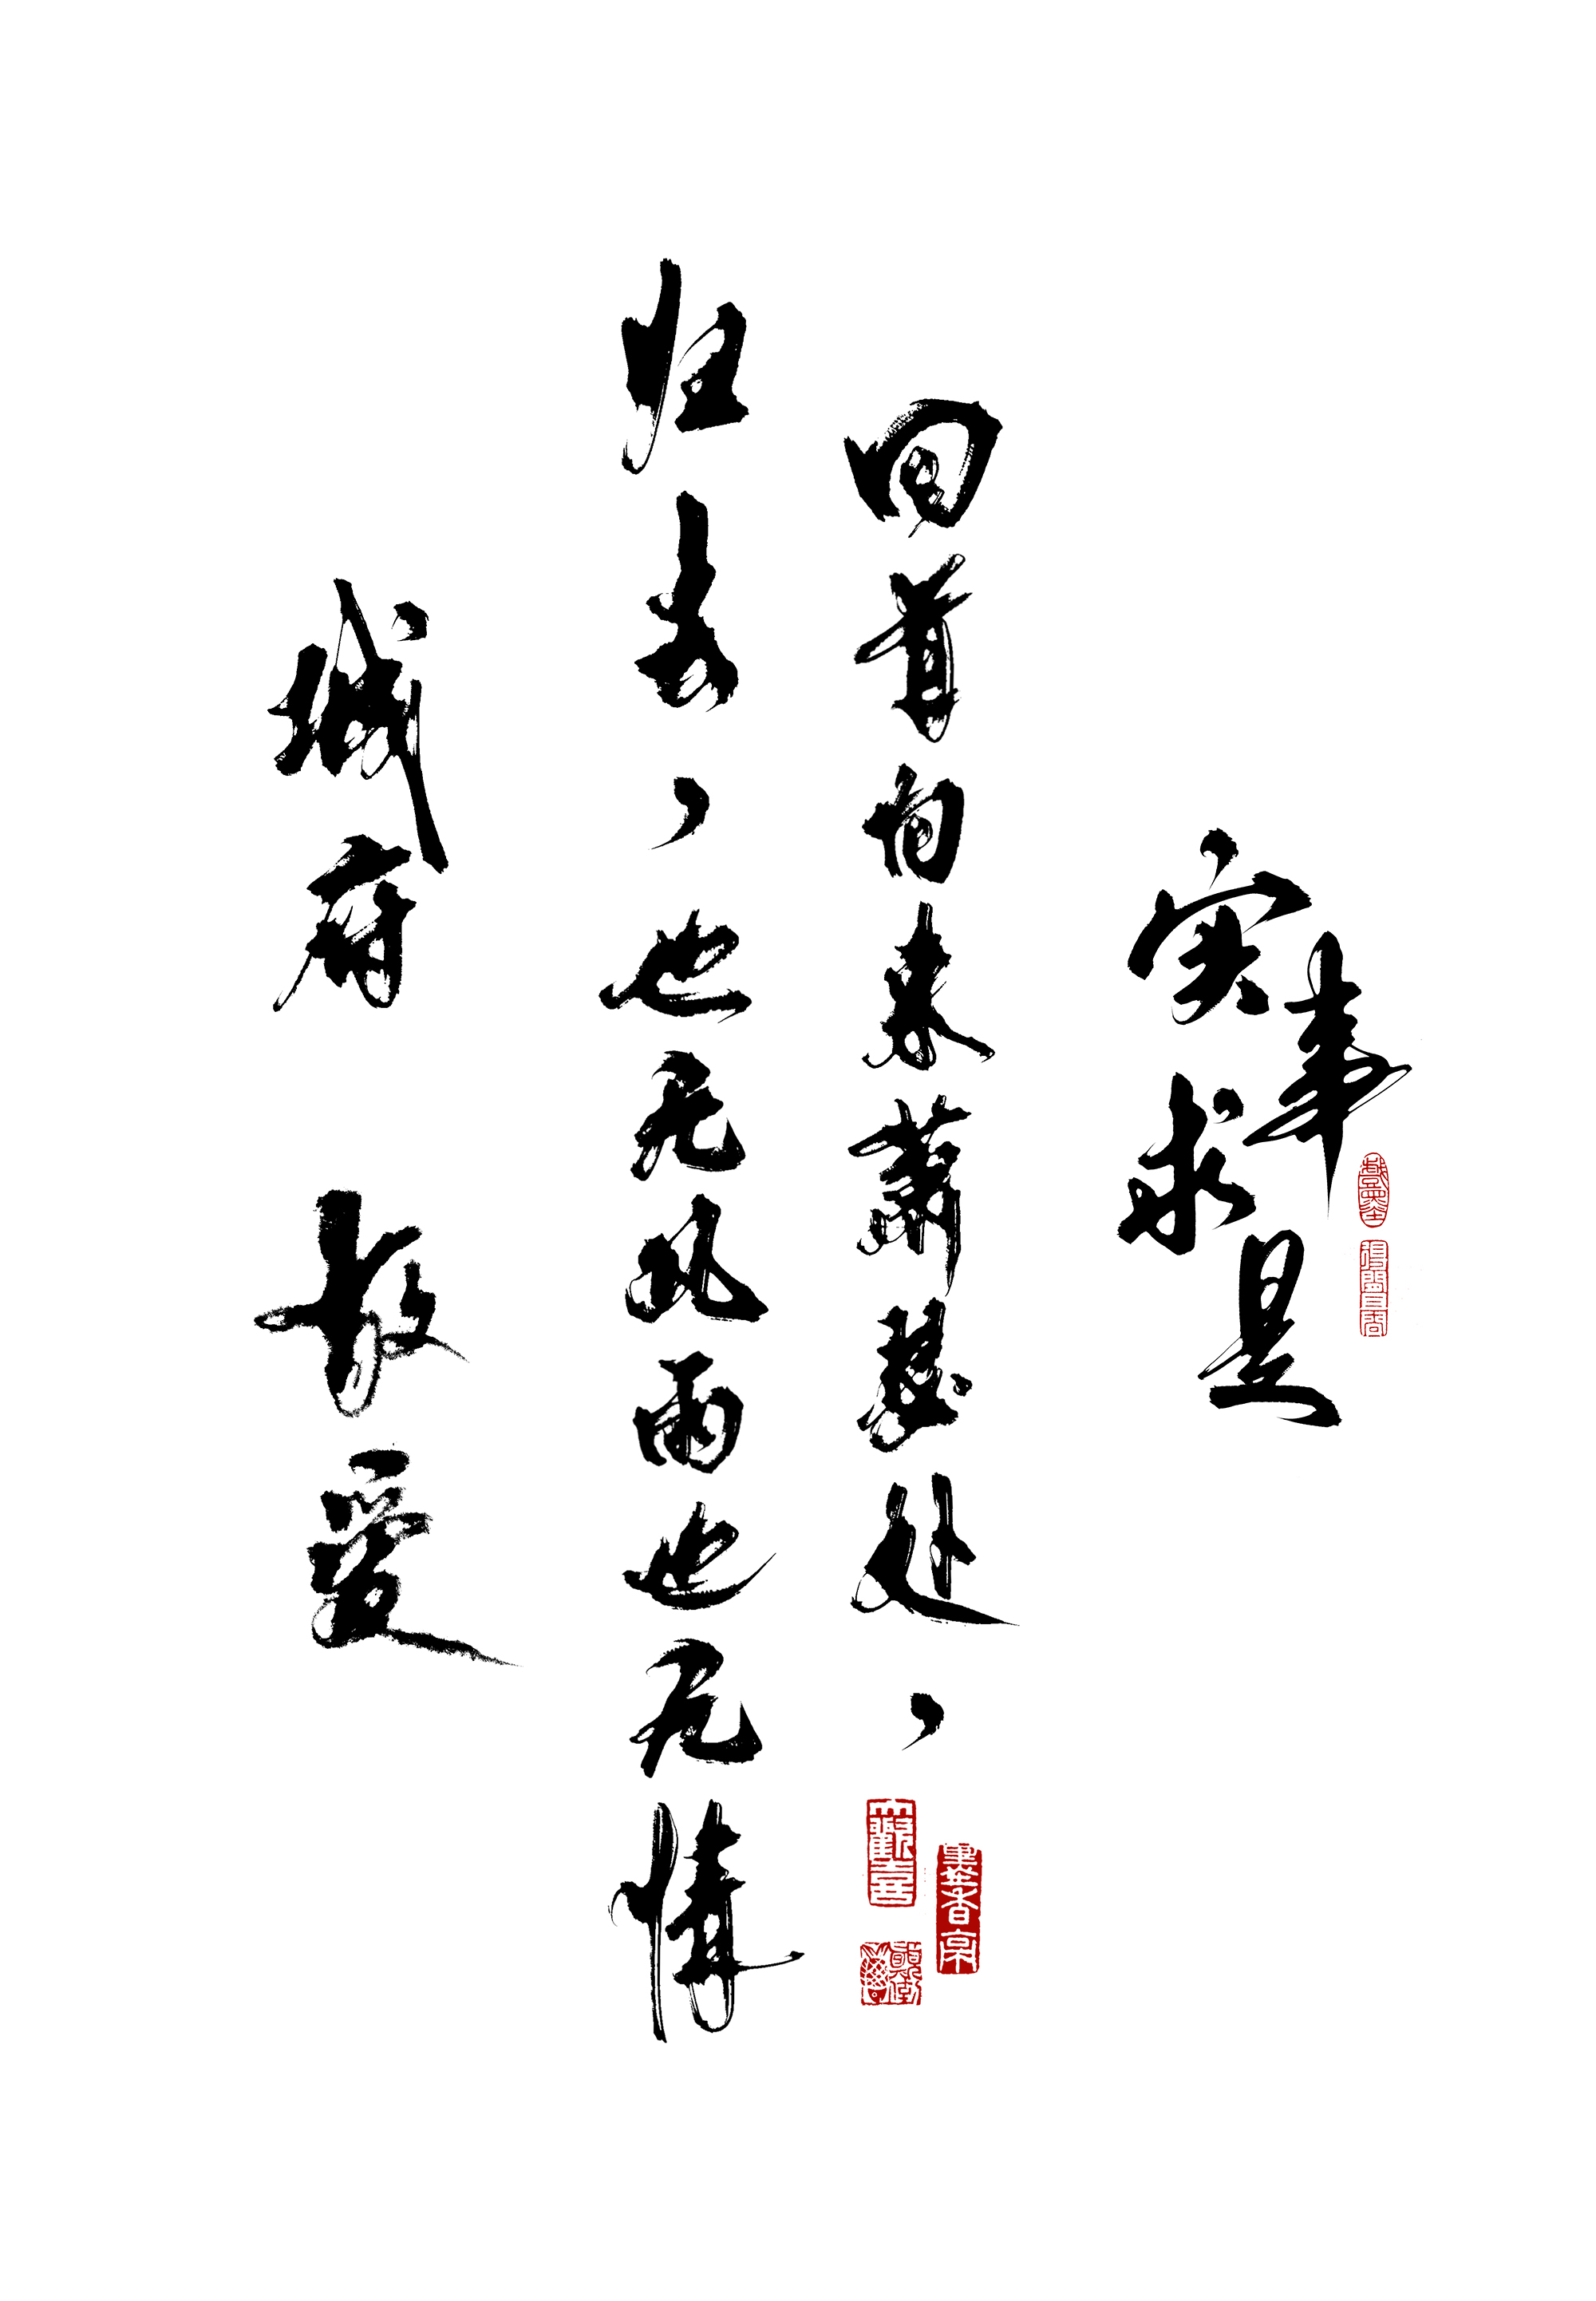 实事
求是
回首向来萧瑟处，
归去，也无风雨也无情
城府 爱